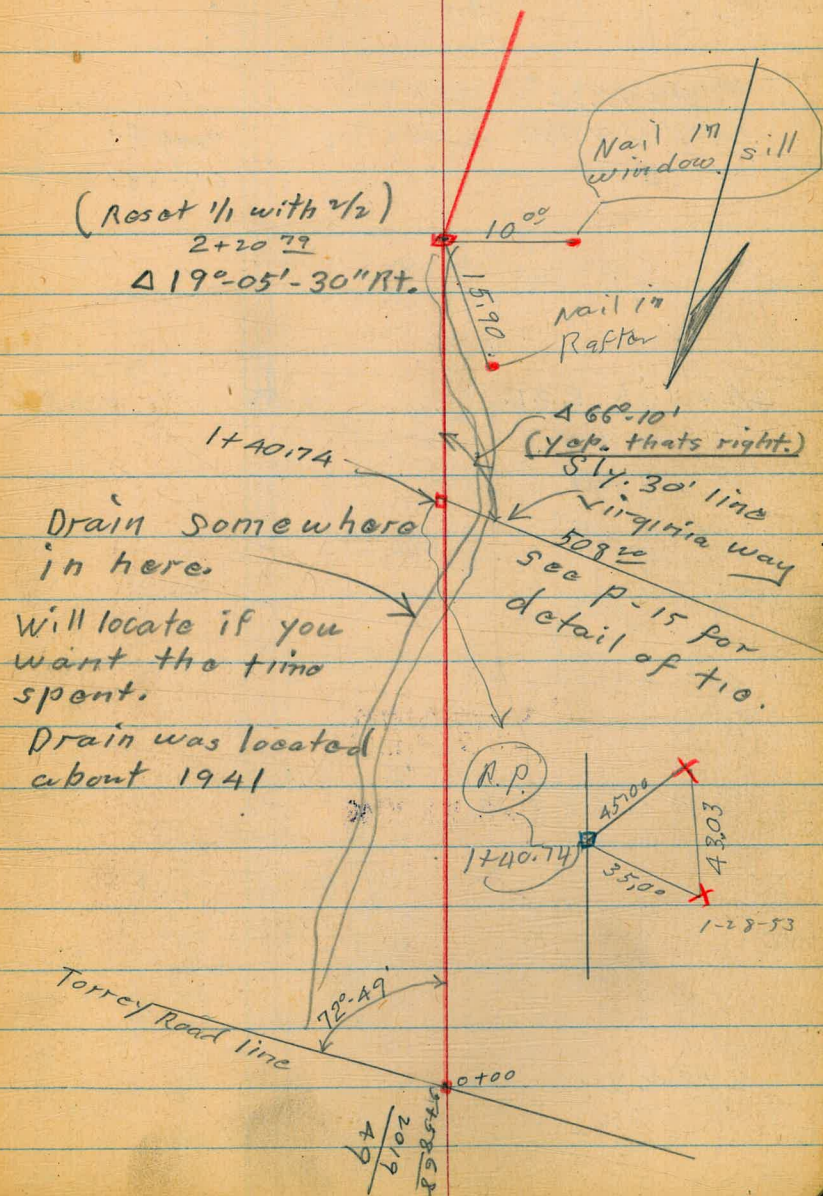 Nail in
window sill
(Reset 1/1 with 2/2)
2+20 79
Δ 19°-05'-30" Rt.
10 00
15.90
Nail in
Rafter
Δ 66°-10'
(yep. thats right.)
1+40.74
Sly. 30' line
Virginia way
508 20
see p-15 for
detail of tie.
Drain somewhere
in here.
Will locate if you
want the time
spent.
Drain was located
about 1941
R.P.
1+40.74
45.00
43.03
35.00
1-28-53
Torrey Road line
72°-49'
0+00
2019
49